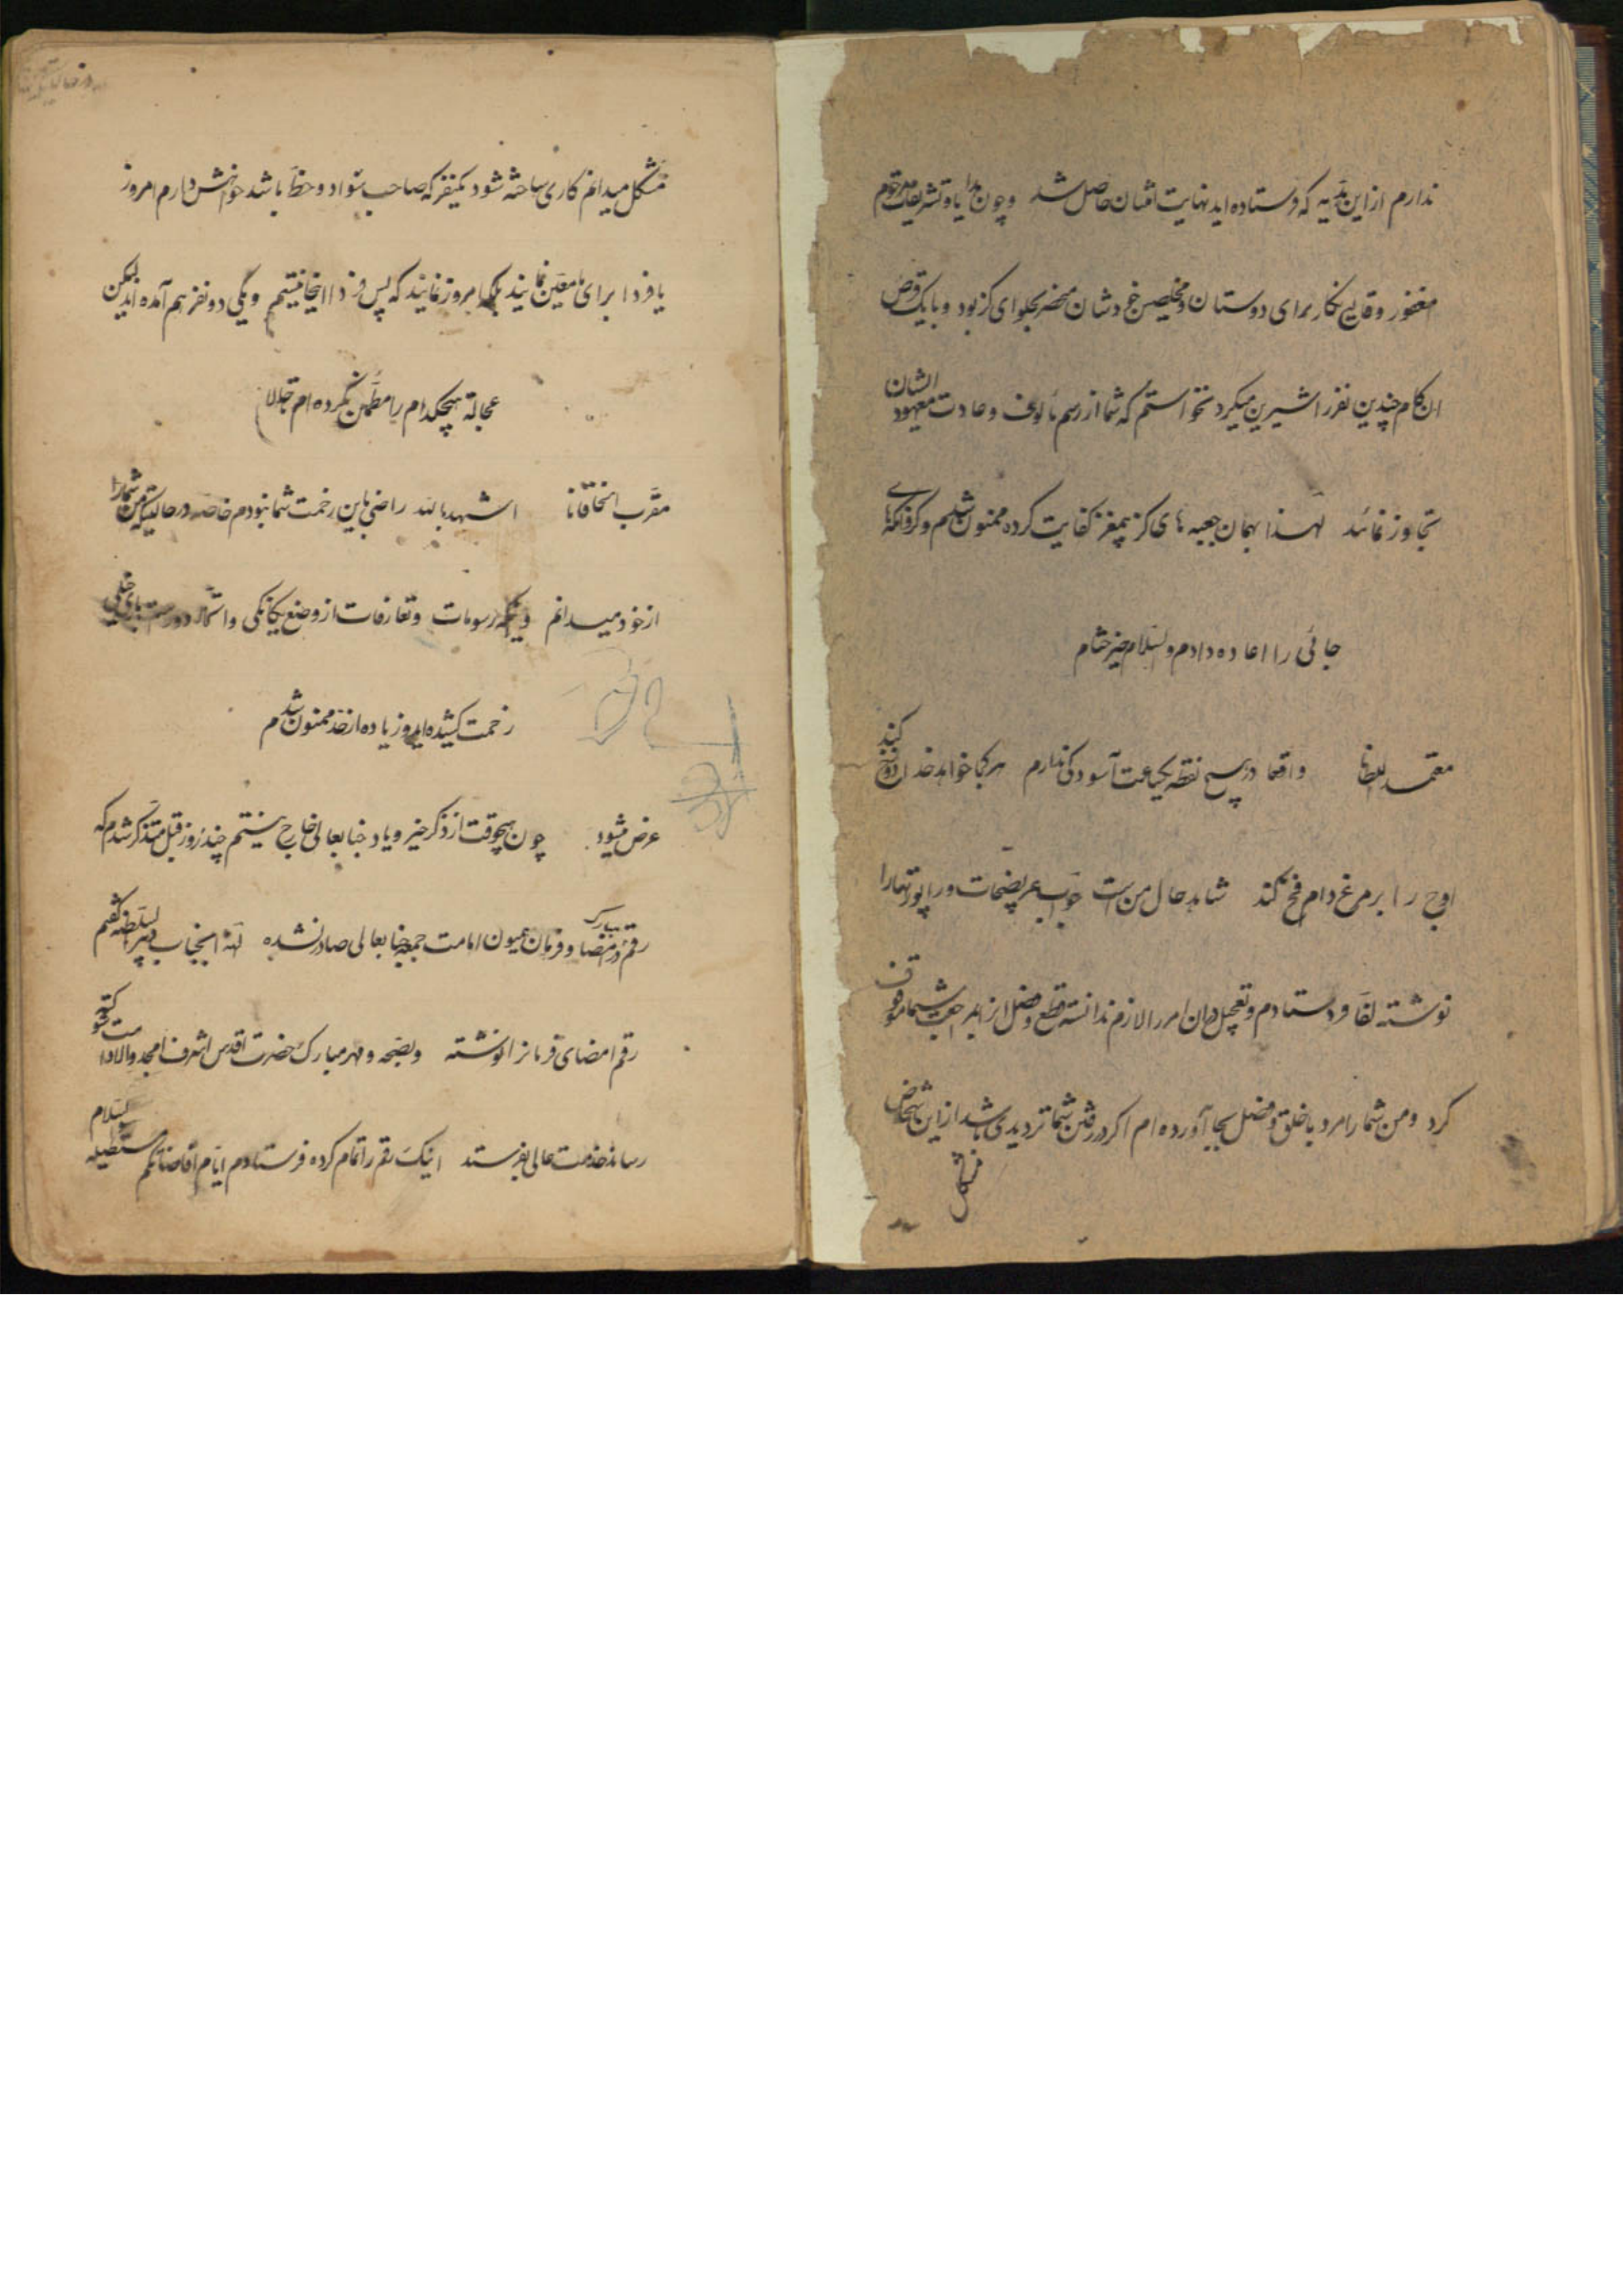 ندارم از این هدیه که فرستاده اید نهایت امتنان حاصل شد و چون هدایا و تشریفات مرحوم
مغفور وقایع نگار برای دوستان و مخلصین خودشان منحصر بحلوای گز بود و با یک قرص
ان کام چندین نفر را شیرین میکرد نخواستم که شما از رسم مألوف و عادت معهود ایشان
تجاوز نمائید لهذا بهمان جعبه های گز بیمغز کفایت کرده ممنون شدم و
جائی را اعاده دادم والسلام خیر ختام
معتمد السلطانا واقعا در هیچ نقطه یکساعت آسودگی ندارم هر کجا خواهد خدا
اوج را بر مرغ دام فخ کند شاهد حال من است جواب عریضجات و راپورتها را
نوشته لفا فرستادم و تعجیل در آن امر را لازم ندانسته قطع و فصل انرا
کرد و من شما را مرد با خلق و فضل بجا آورده ام اگر در رفتن شما تردیدی باشد از این اشخاص
مشکل
مشکل میدانم کاری ساخته شود یکنفر که صاحب سواد و خط باشد خواهش دارم امروز
یا فردا برای ما معین نمایند بلکه امروز نمایند که پس فردا اینجا نیستم و یکی دو نفر هم آمده اند لیکن
عجالة هیچکدام را مطمئن نکرده ام
مقرب الخاقانا اشهد بالله راضی باین زحمت شما نبودم خاصه در حالتیکه من شما را
از خود میدانم و اینگونه رسومات و تعارفات از وضع یگانگی و دور است باری خیلی
زحمت کشیده اید و زیاده از حد ممنون شدم
عرض میشود چون هیچوقت از ذکر خیر و یاد جنابعالی خارج نیستم چند روز قبل متذکر شدم که
رقم مبارک در امضاء فرمان امامت جمعه جنابعالی صادر نشده لهذا بجناب دبیر السلطنه گفتم
رقم امضای فرمانرا نوشته و بصحه و مهر مبارک حضرت اقدس اشرف امجد والا
رساند خدمت عالی بفرستد اینک رقم را تمام کرده فرستادم ایام افاضاتکم مستطیله والسلام